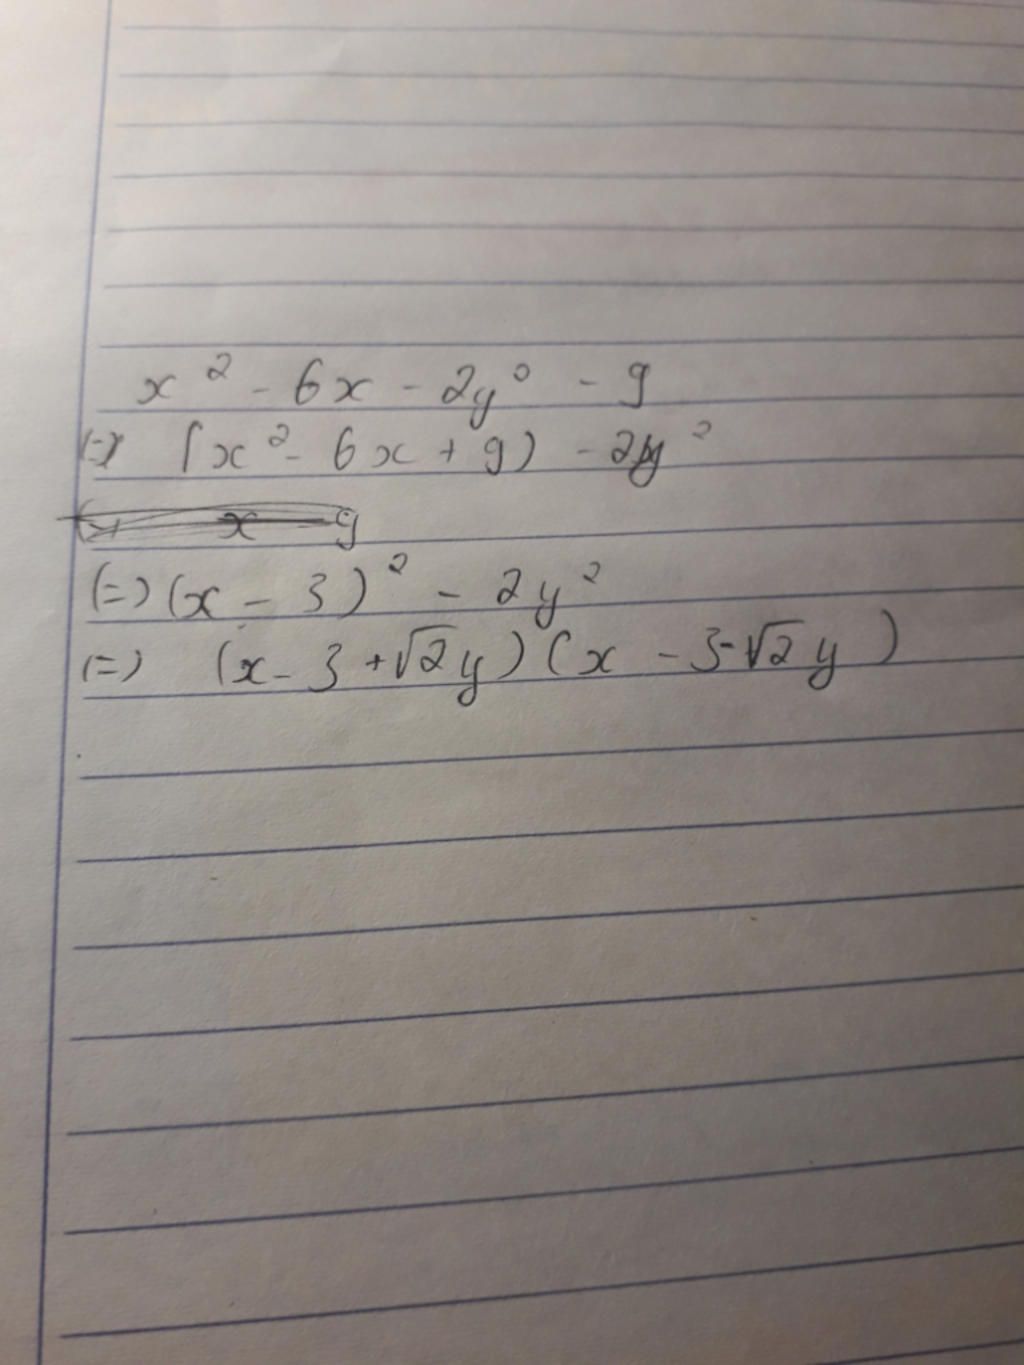 x² - 6x - 2y² - 9
(=) (x² - 6x + 9) - 2y²
x - 9
(=) (x - 3)² - 2y²
(=) (x - 3 + √2y)(x - 3 - √2y)